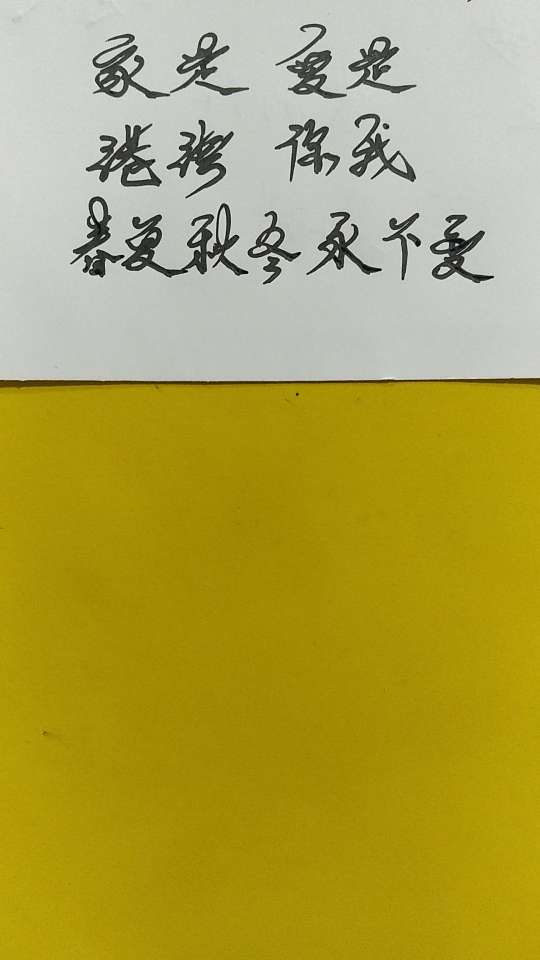 家是 爱是
港湾 你我
春夏秋冬永不变